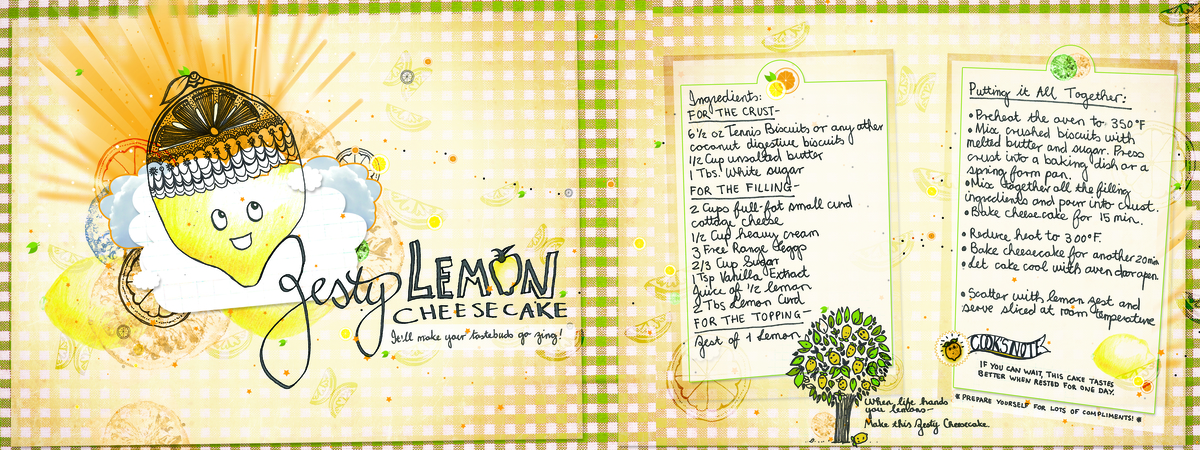 Zesty LEMON
CHEESECAKE
It'll make your tastebuds go zing!
Ingredients:
FOR THE CRUST-
6½ oz Tennis Biscuits or any other
coconut digestive biscuits
1/2 Cup unsalted butter
1 Tbs White sugar
FOR THE FILLING-
2 Cups full-fat small curd
cottage cheese
1/2 Cup heavy cream
3 Free Range Eggs
2/3 Cup Sugar
1 Tsp Vanilla Extract
Juice of ½ lemon
2 Tbs Lemon Curd
FOR THE TOPPING-
Zest of 1 Lemon
When life hands
you lemons-
Make this Zesty Cheesecake.
Putting it All Together:
• Preheat the oven to 350°F
• Mix crushed biscuits with
melted butter and sugar. Press
crust into a baking dish or a
spring form pan.
• Mix together all the filling
ingredients and pour into crust.
• Bake cheesecake for 15 min.
• Reduce heat to 300°F.
• Bake cheesecake for another 20min
• Let cake cool with oven door open.
• Scatter with lemon zest and
serve sliced at room temperature
COOK'S NOTE
IF YOU CAN WAIT, THIS CAKE TASTES
BETTER WHEN RESTED FOR ONE DAY.
* PREPARE YOURSELF FOR LOTS OF COMPLIMENTS! *